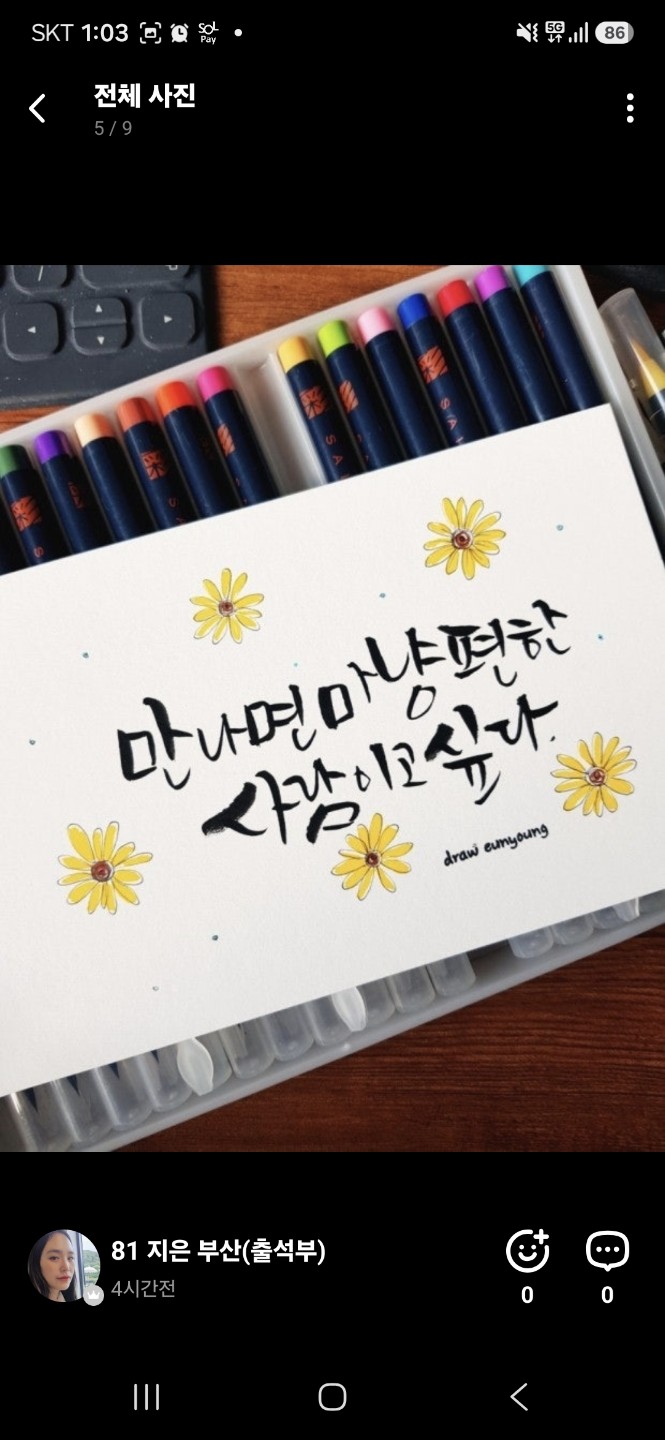 SKT 1:03 SOL Pay 5G 86
전체 사진
5 / 9
만나면 마냥 편한
사람이고 싶다.
draw eunyoung
81 지은 부산(출석부)
4시간전
0 0